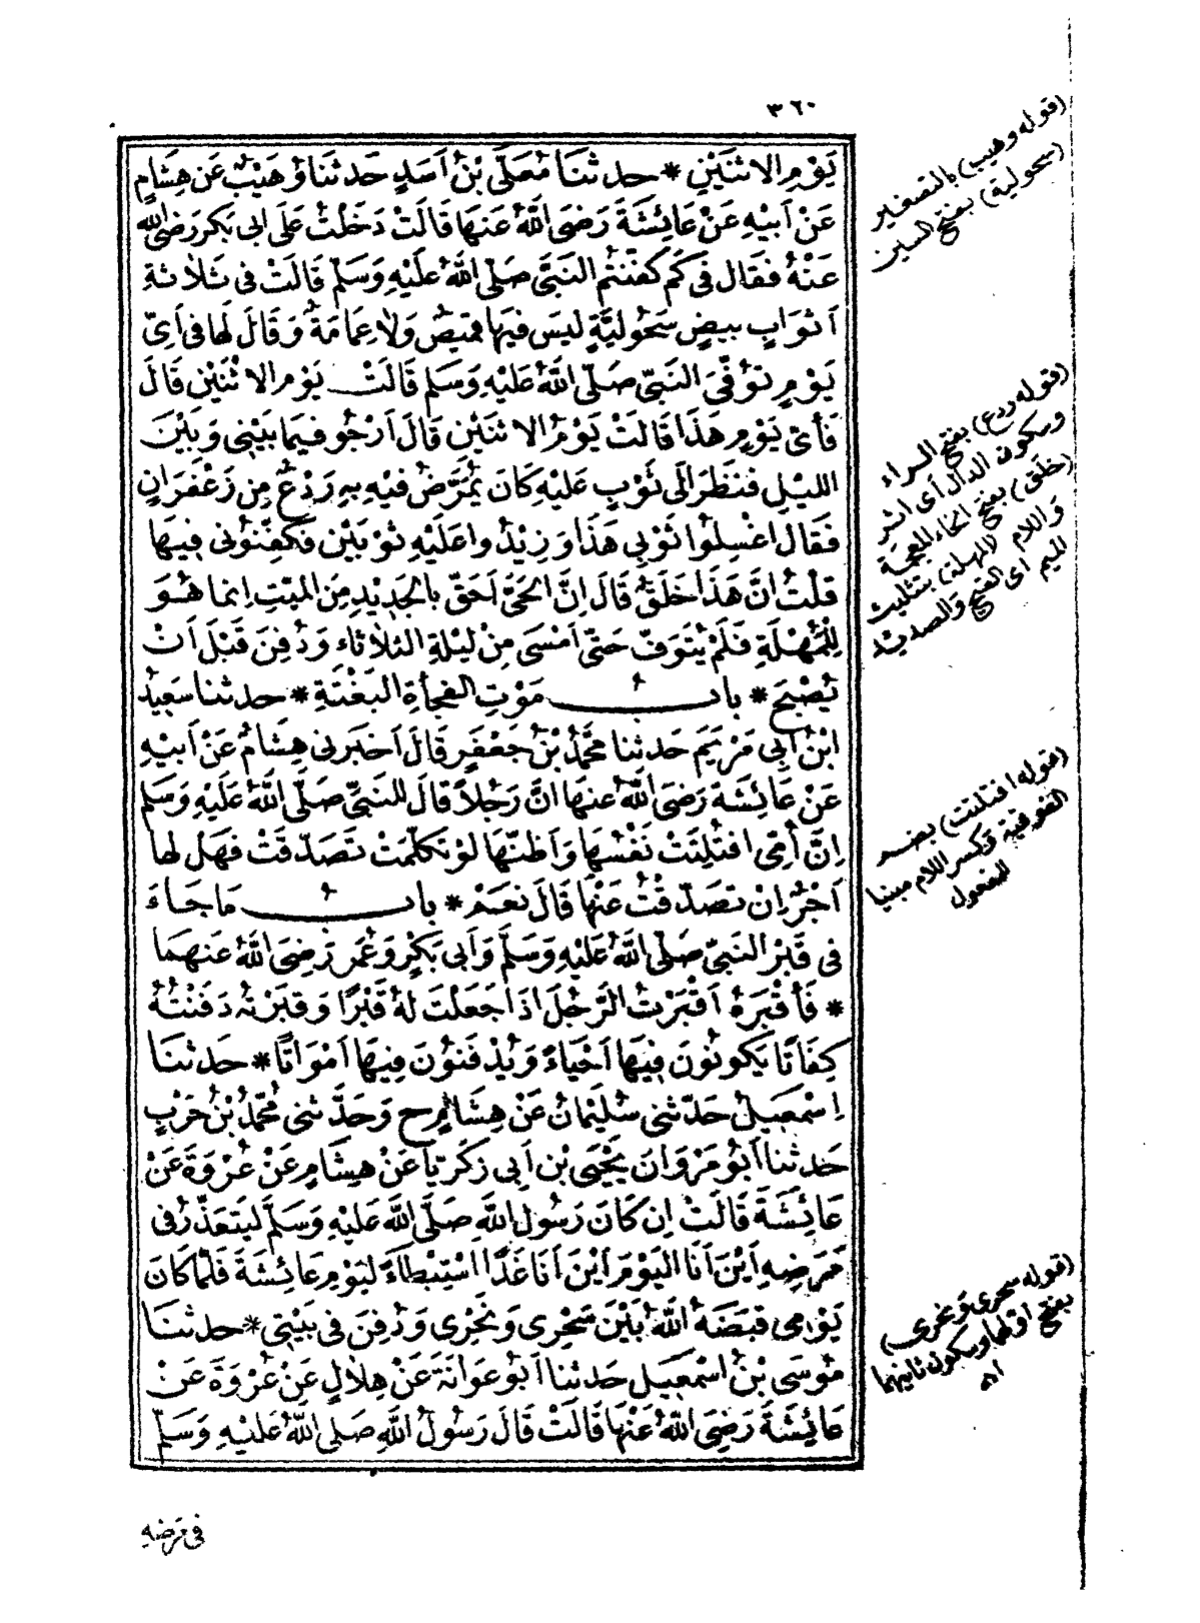 ٣٦٠
يَوْمِ الاثنَيْنِ * حدثنَا مُعَلَّى بْنُ اَسَدٍ حَدثنَا وُهَيْبٌ عَن هِشَامٍ
عَنْ اَبيْهِ عَنْ عَائِشَةَ رَضىَ اللَّهُ عَنهَا قَالَتْ دَخَلْتُ عَلَى ابى بَكررَضىَ اللَّه
عَنْهُ فقَال فى كَم كفَّنتُم النبَىَّ صَلّى اللَّهُ عَلَيْهِ وَسَلّم قَالَتْ فى ثلاثةِ
اَثوَابٍ بيضٍ سَحُوليَّةٍ ليسَ فيهَا قميصٌ وَلا عِمَامَةٌ وَقالَ لَها فى اَىّ
يَوْمٍ توُفّىَ النبىّ صَلّى اللَّهُ عَلَيْهِ وَسَلم قَالَتْ يَوْمَ الاثنَيْنِ قَالَ
فَأىّ يَوْمٍ هَذَا قالَتْ يَوْمُ الاثنَيْنِ قَالَ اَرْجُو فيمَا بَيْنِى وَبَيْنَ
الليْلِ فنظَرَ الَى ثَوْبٍ عَلَيْهِ كَان يُمَرَّضُ فيْهِ بهِ رَدْعٌ مِن زَعْفَرَانٍ
فقَال اغْسِلُوا ثَوْبِى هَذَا وَزِيْدُوا عَلَيْهِ ثوْبَيْن فكَفِّنُونى فيهَا
قلْتُ انَّ هَذَا خَلَقٌ قَالَ اِنَّ الحَىَّ اَحَقّ بالجَدِيْدِ مِنَ الميّتِ اِنما هُوَ
لِلْمُهْلَةِ فَلَمْ يُتَوَفَّ حَتّى اَمْسَى مِنْ ليْلَةِ الثلاثاء وَدُفِنَ قَبْلَ اَنْ
يُصْبحَ * بابُ مَوْتِ الفجأةِ البَغْتَةِ * حدثنا سَعِيْدُ
ابْنُ اَبى مَرْيَمَ حَدثنا محَمَّدُ بْنُ جَعْفَرٍ قَالَ اَخبَرنى هِشَامٌ عَنْ اَبيْهِ
عَنْ عَائِشَةَ رَضىَ اللَّهُ عنهَا انَّ رَجُلاً قَالَ للنبىِّ صَلّى اللَّهُ عَلَيْهِ وَسَلم
اِنَّ اُمّى افتُلِتَتْ نَفْسُهَا وَاَظنّهَا لوْ تكَلّمَتْ تَصَدّقَتْ فَهَلْ لها
اَجْرٌ اِنْ تصَدّقْتُ عَنْهَا قَالَ نعَمْ * بابُ مَا جَاءَ
فى قَبْر النبىّ صَلّى اللَّهُ عَلَيْهِ وَسَلّمَ وَاَبى بَكْرٍ وَعُمَر رَضِىَ اللَّهُ عَنهمَا
* فَأَقْبَرَهُ اَقْبَرْتُ الرّجُلَ اذَا جَعَلْتَ لهُ قَبْرًا وَقبَرْتهُ دَفَنْتُهُ
كِفَاتًا يَكوُنوُنَ فِيْهَا اَحْيَاءً وَيُدْفَنوُنَ فِيْهَا اَمْوَاتًا * حَدثنَا
اِسْمَعِيلُ حَدّثنى سُلَيْمَانُ عَنْ هِشَامٍ ح وَحَدَّثنى مُحَمَّدُ بْنُ حَرْبٍ
حَدثنا اَبُو مَرْوَانَ يَحْيَى بْن اَبى زكَريّا عَنْ هِشَامٍ عَنْ عُرْوَةَ عَنْ
عَائِشَةَ قَالَتْ اِن كَانَ رَسُولُ اللَّهِ صَلّى اللَّه عَليْهِ وَسَلّمَ ليَتعَذّرُ فى
مَرَضِهِ اَيْنَ اَنَا اليَوْمَ اَيْنَ اَنَا غَدًا اسْتِبْطَاءً ليَوْمِ عَائِشَةَ فَلمّا كَانَ
يَوْمى قبَضَهُ اللَّهُ بَيْنَ سَحْرِى وَنَحْرِى وَدُفِنَ فى بَيْتِى * حَدثنَا
مُوسَى بْنُ اسْمَعِيلَ حَدثنا اَبُو عَوَانَةَ عَنْ هِلالٍ عَنْ عُرْوَةَ عَنْ
عَائِشَةَ رَضِىَ اللَّهُ عَنْهَا قَالَتْ قَالَ رَسُولُ اللَّهِ صَلى اللَّهُ عَلَيْهِ وَسَلّمَ
فى مَرَضهِ
(قوله وهيب) بالتصغير
(سحولية) بفتح السين
(قوله ردع) بفتح الراء
وسكون الدال اى اثر
(خلق) بفتح الخاء المعجمة
واللام (المهلة) بتثليث
الميم اى القيح والصديد
(قوله افتلتت) بضم
الفوقية وكسر اللام مبنيا
للمفعول
(قوله سحرى ونحرى)
بفتح اولهما وسكون ثانيهما
اه